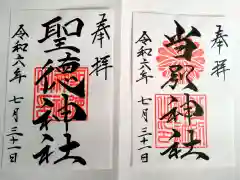 奉拝
聖徳神社
令和六年
七月三十一日
奉拝
当別神社
令和六年
七月三十一日